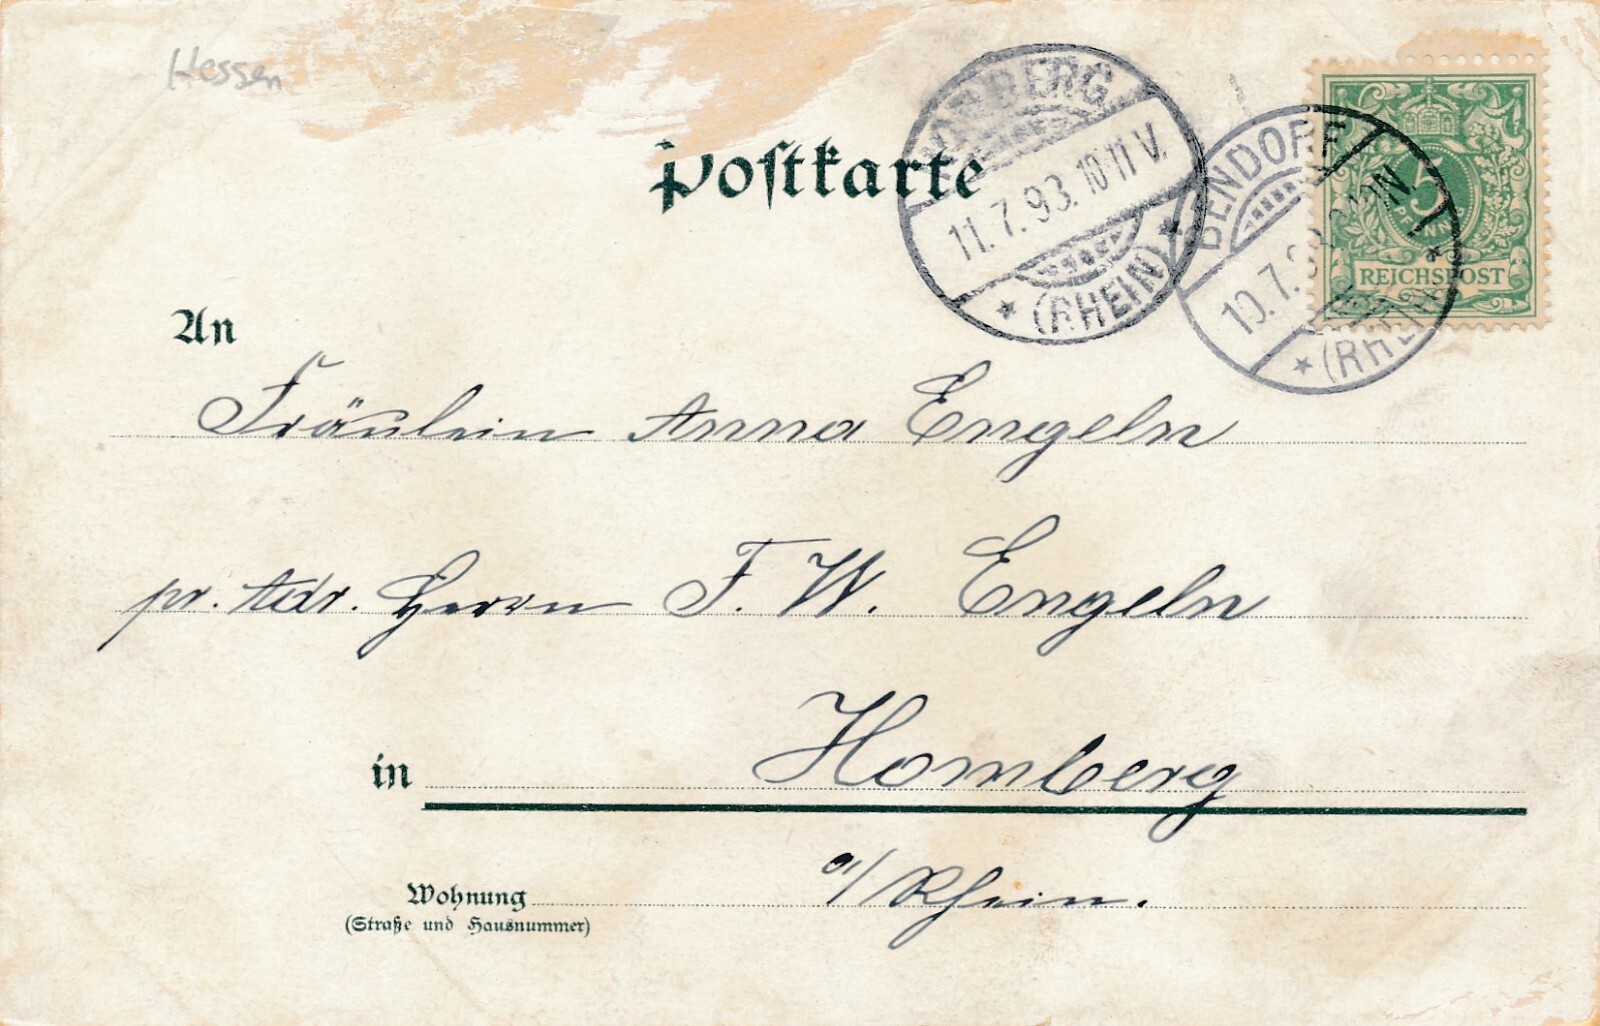 Hessen
Postkarte
HOMBERG
11.7.93. 10-11 V.
(RHEIN)
BENDORF
10.7.
(RHEIN)
5
PFENNIG
REICHSPOST
An
Fräulein Anna Engeln
pr. Adr. Herrn F. W. Engeln
in Homberg
a/Rhein.
Wohnung
(Straße und Hausnummer)